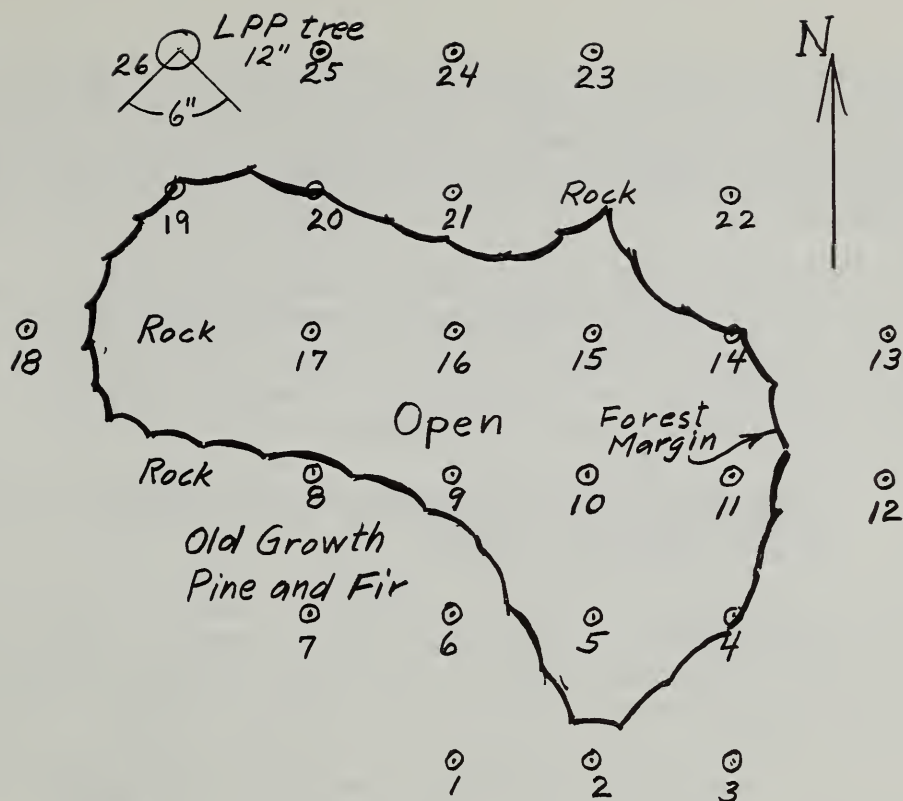 LPP tree
12"
N
26
6"
25
24
23
Rock
19
20
21
22
18
Rock
17
16
15
14
13
Open
Forest
Margin
Rock
8
9
10
11
12
Old Growth
Pine and Fir
7
6
5
4
1
2
3